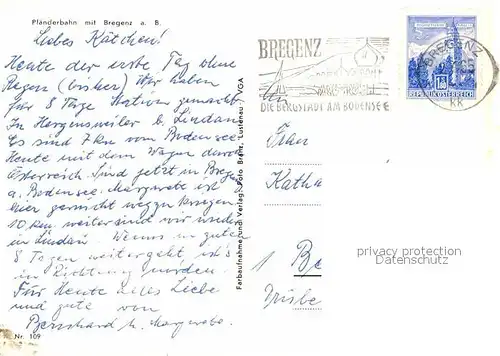 Pfänderbahn mit Bregenz a. B.
Liebes Kätchen!
Heute der erste Tag ohne
Regen (bisher) Wir haben
für 8 Tage Station gemacht
In Hergensweiler b. Lindau
Es sind 7 km vom Bodensee
Heute mit dem Wagen durch
Österreich. Sind jetzt in Bregenz
a. Bodensee. Margarete ist
hier
10 km weiter sind wir wieder
in Lindau. Wenns in guten
8 Tagen weitergeht,
in Richtung Norden.
Für Heute alles Liebe
und gute von
Bernhard u. Margarete.
Nr. 109
Farbaufnahme und Verlag: Foto Lustenau / VGA
BREGENZ
DIE BERGSTADT AM BODENSEE
BREGENZ
REPUBLIK ÖSTERREICH
Frau
Katha
1 Be
privacy protection
www.ansichtskartenversand.com